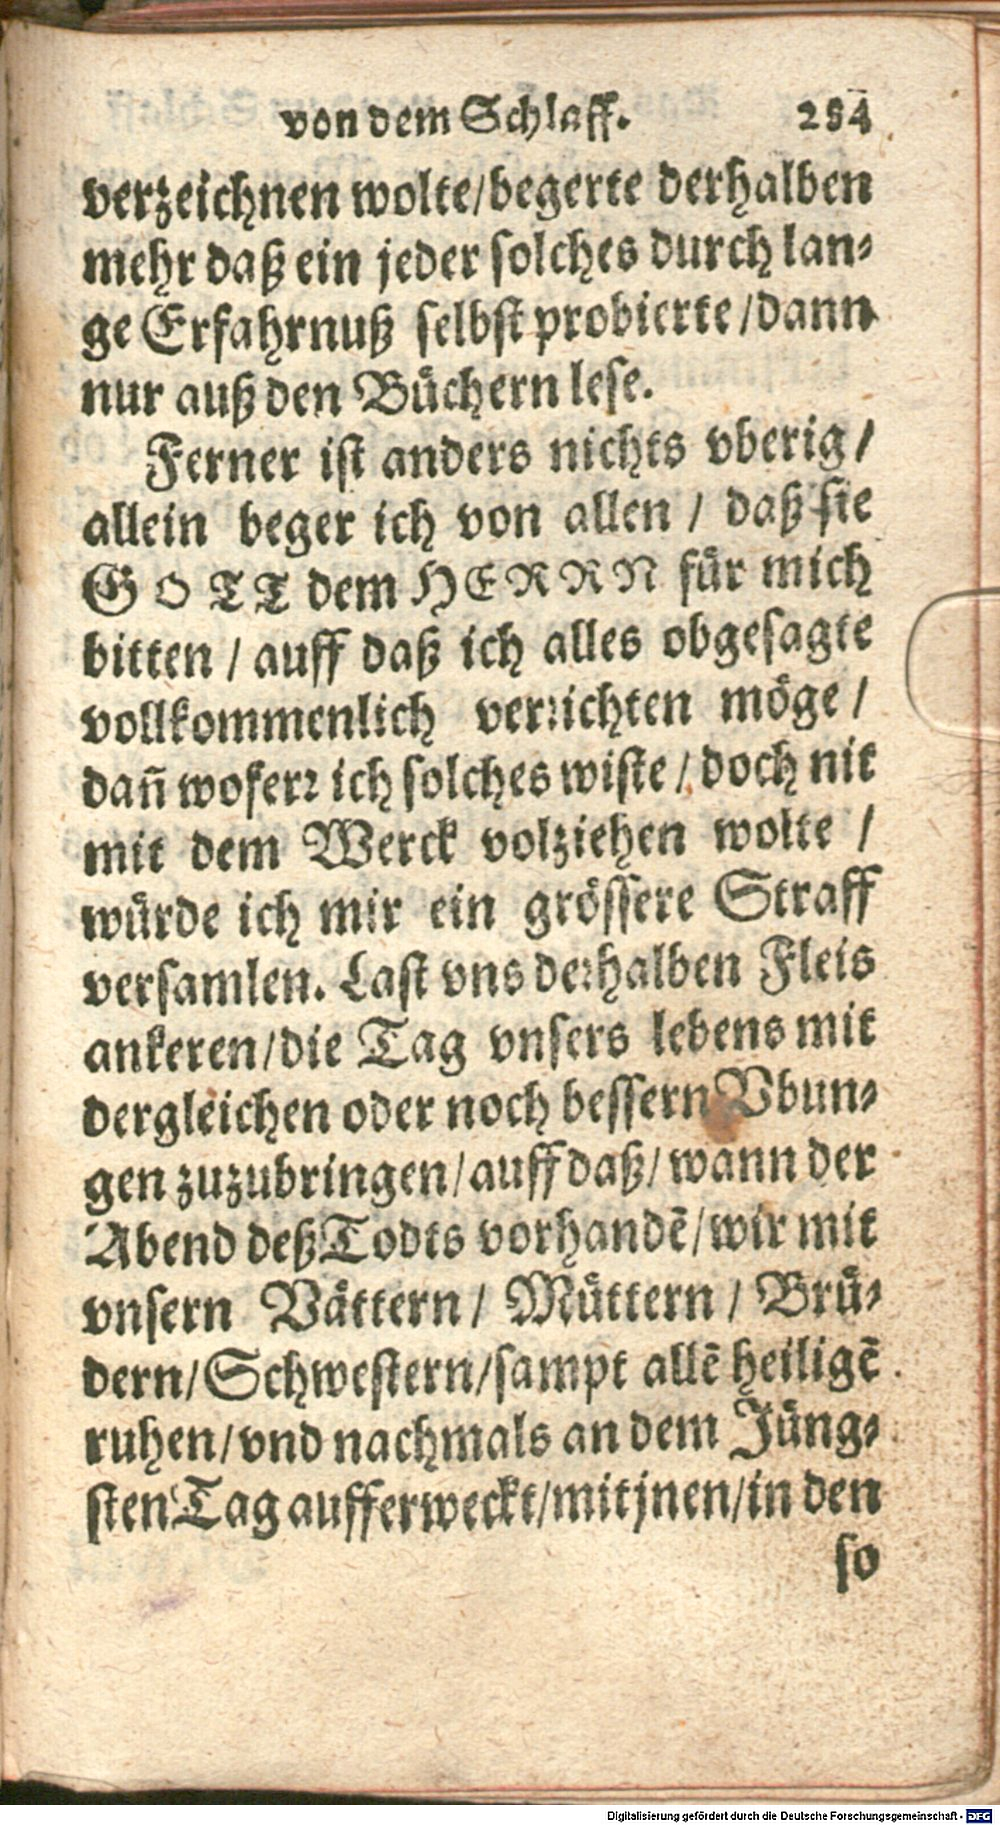 von dem Schlaff. 284
verzeichnen wolte/begerte derhalben
mehr daß ein jeder solches durch lan⸗
ge Erfahrnuß selbst probierte/dann
nur auß den Büchern lese.
Ferner ist anders nichts vberig/
allein beger ich von allen / daß sie
GOTT dem HERRN für mich
bitten / auff daß ich alles obgesagte
vollkommenlich verꝛichten möge/
dañ woferꝛ ich solches wiste / doch nit
mit dem Werck volziehen wolte /
würde ich mir ein grössere Straff
versamlen. Last vns deꝛhalben Fleis
ankeren/die Tag vnsers lebens mit
dergleichen oder noch bessern Vbun⸗
gen zuzubringen/auff daß/wann der
Abend deß Todts vorhandẽ/wir mit
vnsern Vättern/ Müttern / Brü⸗
dern/Schwestern/sampt allẽ heiligẽ
ruhen/vnd nachmals an dem Jüng⸗
sten Tag aufferweckt/mit jnen/in den
so
Digitalisierung gefördert durch die Deutsche Forschungsgemeinschaft - DFG